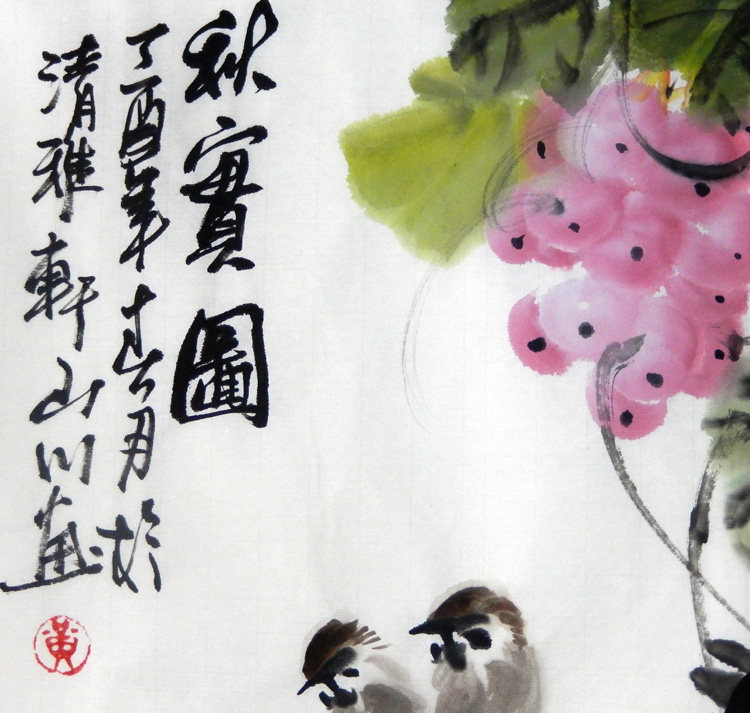 秋實圖
丁酉年春月於
清雅軒山川畫
黃